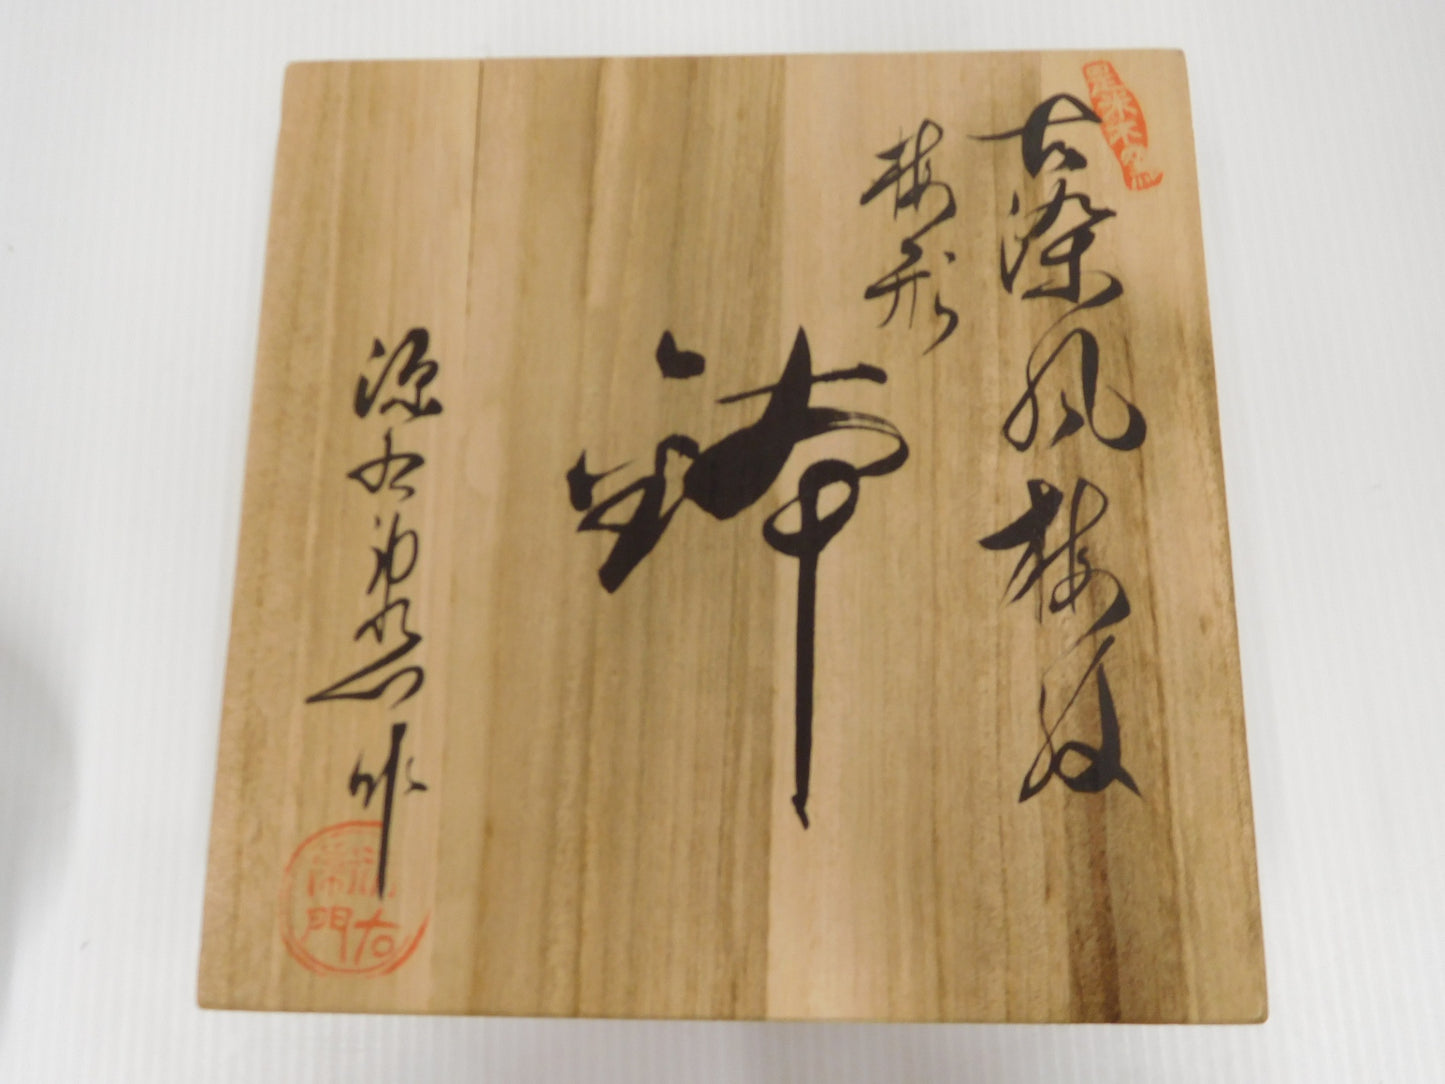 古染風梅紋
梅形
鉢
源右衛門窯作
源右
衛門